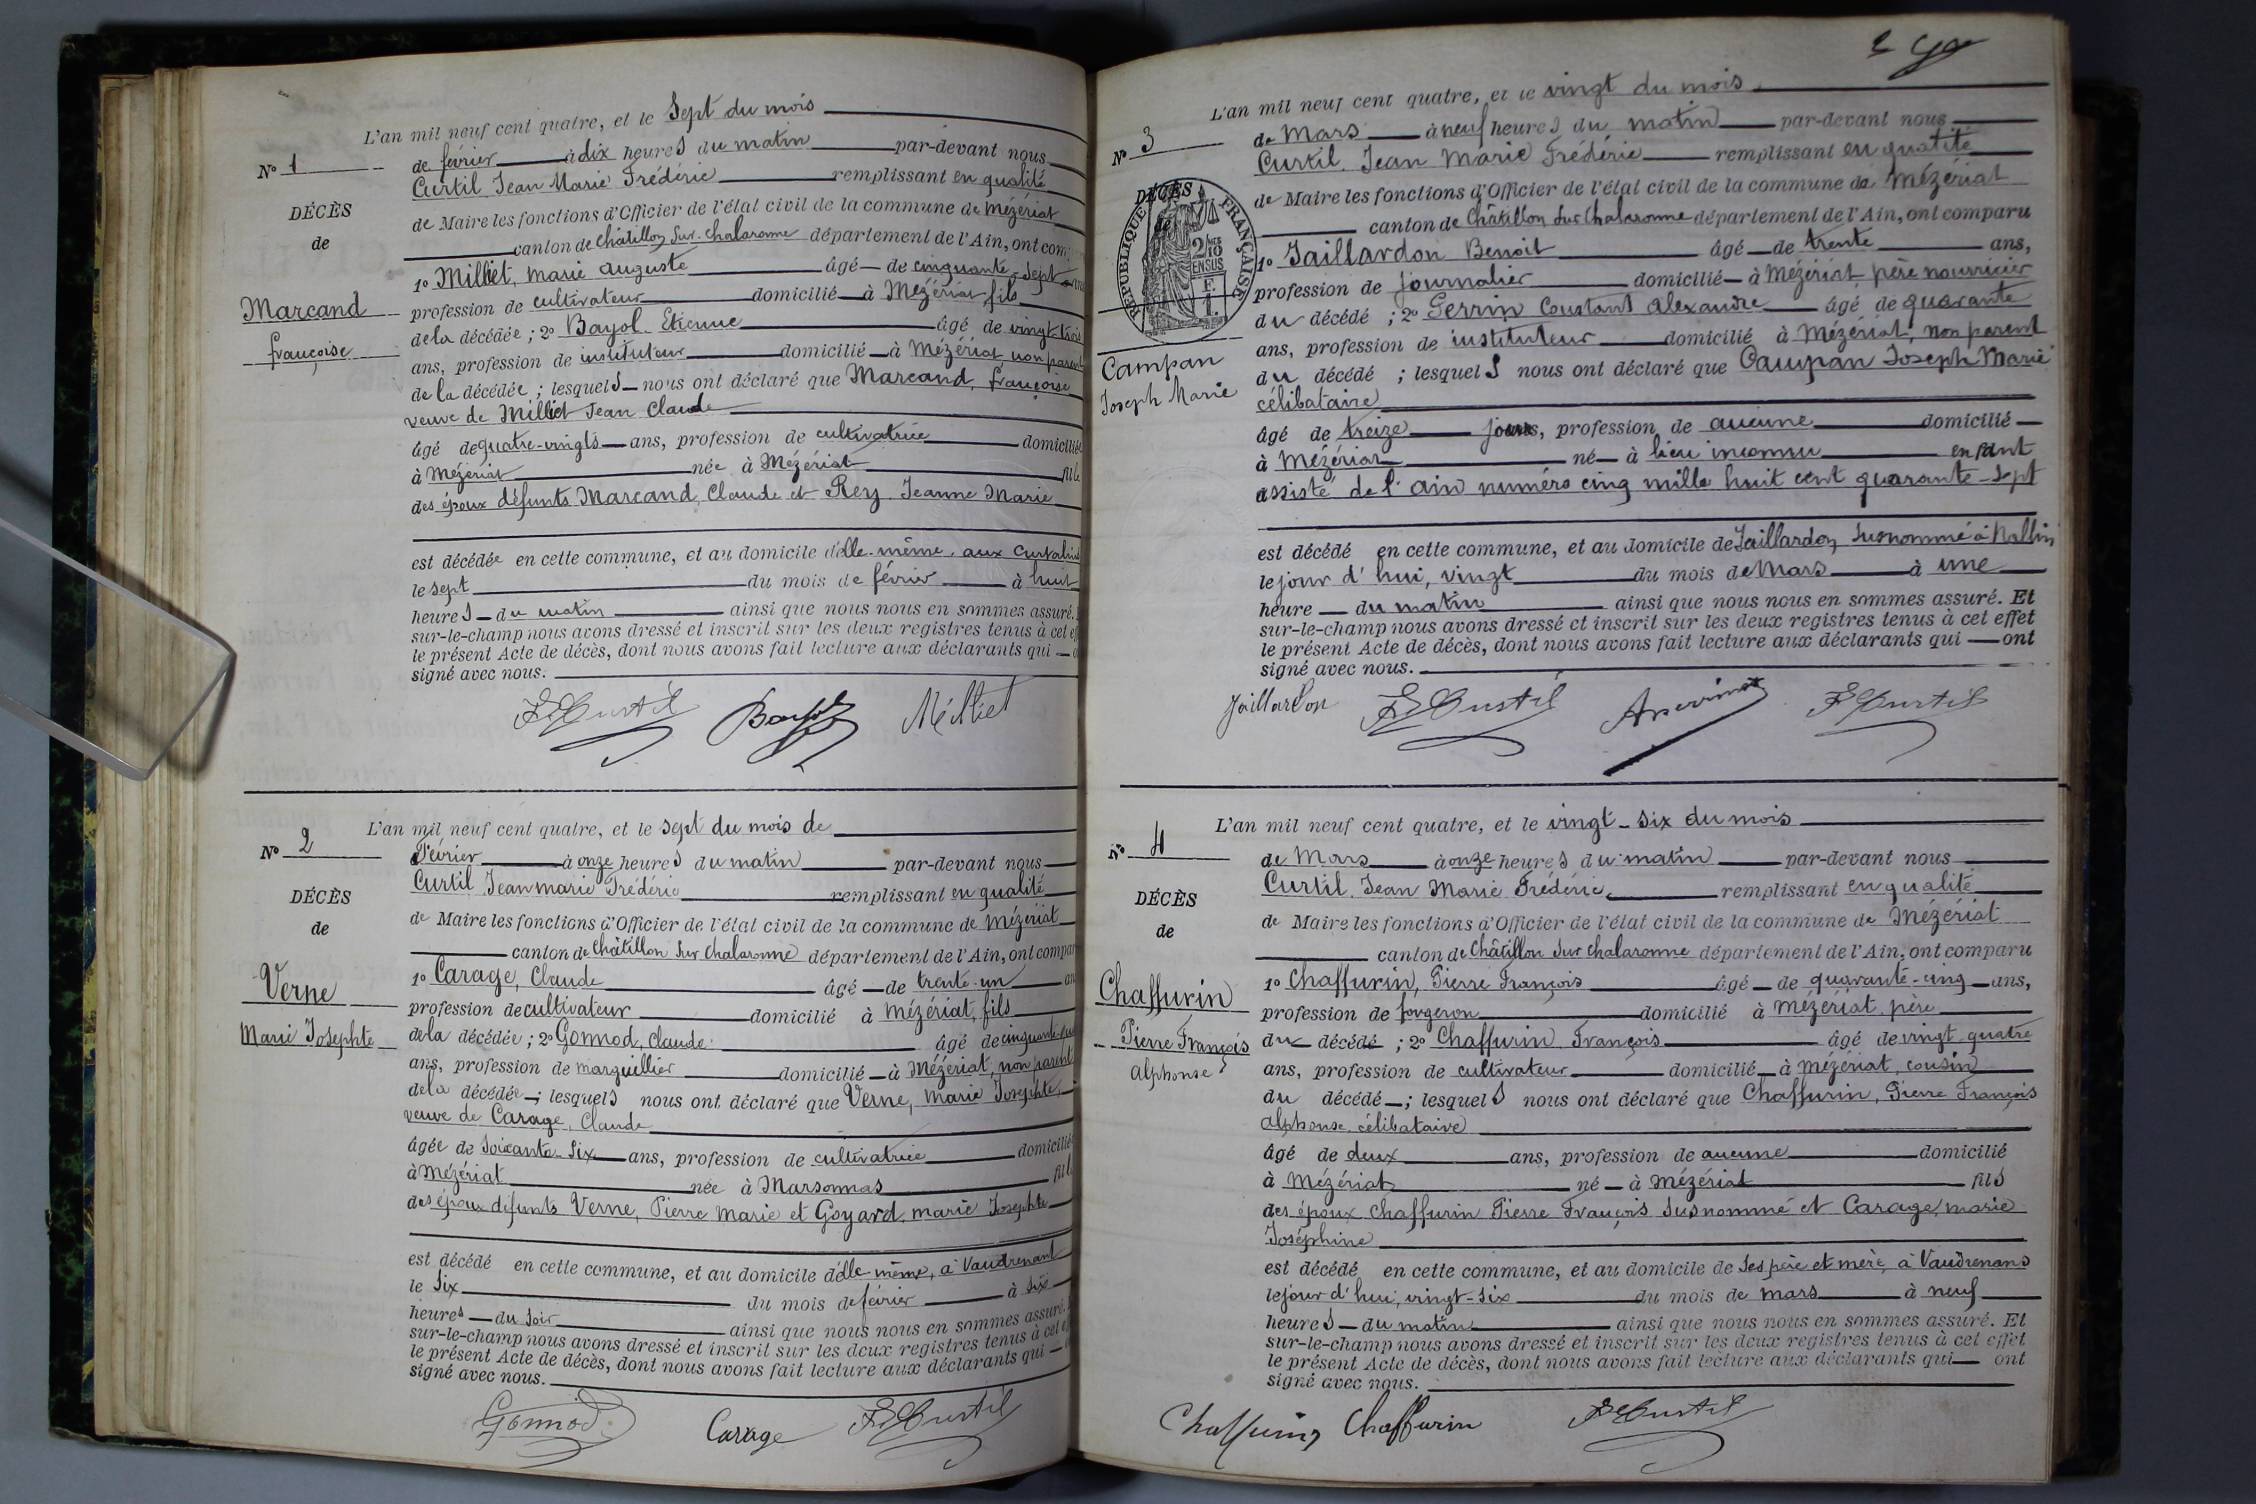 L'an mil neuf cent quatre, et le Sept du mois
No 1
de février à dix heures du matin par-devant nous
Curtil Jean Marie Frédéric remplissant en qualité
DÉCÈS
de
de Maire les fonctions d'Officier de l'état civil de la commune de Mézériat
canton de Châtillon Sur Chalaronne département de l'Ain, ont com
1o Milliet, Marie Auguste âgé de cinquante-sept
Marcand
françoise
profession de cultivateur domicilié à Mézériat, fils
de la décédée ; 2o Bayol Etienne âgé de vingt trois
ans, profession de instituteur domicilié à Mézériat non parent
de la décédée ; lesquels nous ont déclaré que Marcand, françoise
veuve de Milliet Jean Claude
âgé de quatre-vingts ans, profession de cultivatrice domiciliée
à Mézériat née à Mézériat fille
des époux défunts Marcand, Claude et Rey, Jeanne Marie
est décédée en cette commune, et au domicile d'elle-même, aux
le sept du mois de février à huit
heures du matin ainsi que nous nous en sommes assuré.
sur-le-champ nous avons dressé et inscrit sur les deux registres tenus à cet
le présent Acte de décès, dont nous avons fait lecture aux déclarants qui
signé avec nous.
F Curtil Bayol Milliet
L'an mil neuf cent quatre, et le sept du mois de
No 2
Février à onze heures du matin par-devant nous
Curtil Jean marie Frédéric remplissant en qualité
DÉCÈS
de
de Maire les fonctions d'Officier de l'état civil de la commune de Mézériat
canton de Châtillon Sur Chalaronne département de l'Ain, ont compar
1o Carage, Claude âgé de trente-un an
Verne
Marie Josephte
profession de cultivateur domicilié à Mézériat, fils
de la décédée ; 2o Gonnod, Claude âgé de
ans, profession de marguillier domicilié à Mézériat, non parent
de la décédée ; lesquels nous ont déclaré que Verne, Marie Josephte,
veuve de Carage, Claude
âgée de Soixante-Six ans, profession de cultivatrice domicilié
à Mézériat née à Marsonnas fil
des époux défunts Verne, Pierre Marie et Goyard, marie Josephte
est décédé en cette commune, et au domicile d'elle-même, à Vaudrenant
le Six du mois de février à six
heures du soir ainsi que nous nous en sommes assuré.
sur-le-champ nous avons dressé et inscrit sur les deux registres tenus à cet
le présent Acte de décès, dont nous avons fait lecture aux déclarants qui
signé avec nous.
Gonnod Carage F Curtil
2
L'an mil neuf cent quatre, et le vingt du mois
No 3
de Mars à neuf heures du matin par-devant nous
Curtil Jean Marie Frédéric remplissant en qualité
DÉCÈS
de
RÉPUBLIQUE FRANÇAISE
de Maire les fonctions d'Officier de l'état civil de la commune de Mézériat
canton de Châtillon Sur Chalaronne département de l'Ain, ont comparu
1o Jaillardon Benoit âgé de trente ans,
profession de journalier domicilié à Mézériat, père nourricier
du décédé ; 2o Perrin Constant Alexandre âgé de quarante
ans, profession de instituteur domicilié à Mézériat, non parent
Campan
Joseph Marie
du décédé ; lesquels nous ont déclaré que Campan Joseph Marie
célibataire
âgé de treize jours, profession de aucune domicilié
à Mézériat né à lieu inconnu enfant
assisté de l'ain numéro cinq mille huit cent quarante-sept
est décédé en cette commune, et au domicile de Jaillardon, Susnommé à
le jour d'hui, vingt du mois de Mars à une
heure du matin ainsi que nous nous en sommes assuré. Et
sur-le-champ nous avons dressé et inscrit sur les deux registres tenus à cet effet
le présent Acte de décès, dont nous avons fait lecture aux déclarants qui ont
signé avec nous.
Jaillardon F Curtil F Curtil
L'an mil neuf cent quatre, et le vingt-six du mois
No 4
de Mars à onze heures du matin par-devant nous
Curtil Jean Marie Frédéric, remplissant en qualité
DÉCÈS
de
de Maire les fonctions d'Officier de l'état civil de la commune de Mézériat
canton de Châtillon Sur Chalaronne département de l'Ain, ont comparu
1o Chaffurin, Pierre François âgé de quarante-cinq ans,
Chaffurin
Pierre François
alphonse
profession de forgeron domicilié à Mézériat, père
du décédé ; 2o Chaffurin François âgé de vingt quatre
ans, profession de cultivateur domicilié à Mézériat, cousin
du décédé ; lesquels nous ont déclaré que Chaffurin, Pierre François
alphonse, célibataire
âgé de deux ans, profession de aucune domicilié
à Mézériat né à Mézériat fils
des époux Chaffurin Pierre François Susnommé et Carage, marie
Joséphine
est décédé en cette commune, et au domicile de Ses père et mère, à Vaudrenans
le jour d'hui, vingt-six du mois de mars à neuf
heures du matin ainsi que nous nous en sommes assuré. Et
sur-le-champ nous avons dressé et inscrit sur les deux registres tenus à cet effet
le présent Acte de décès, dont nous avons fait lecture aux déclarants qui ont
signé avec nous.
Chaffurin Chaffurin F Curtil